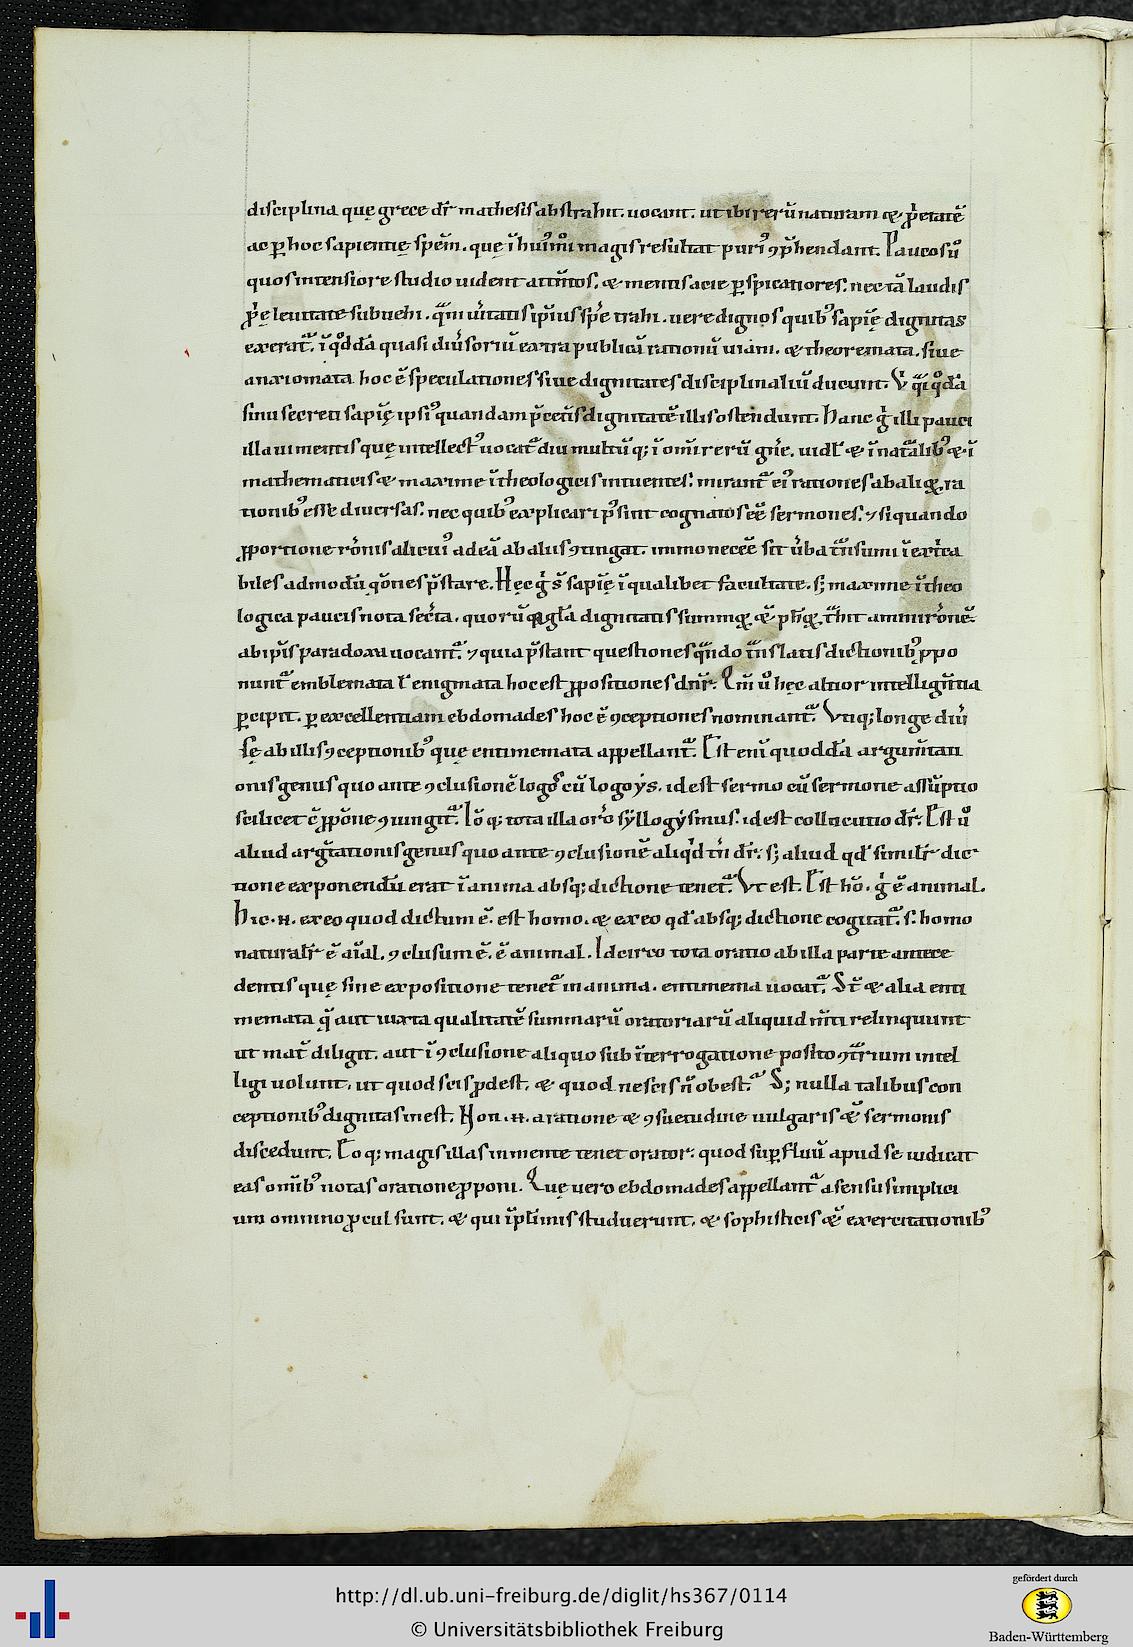 disciplina quę grece dr̄ mathesis abstrahit. uocant. ut ibi rerū naturam &
ac ꝑ hoc sapientię spēm. quę ī magis resultat Paucos ů
quos intensiore studio uident attētos. & mentis acie ꝑspicatiores. nec tā laudis
leuitate subuehi. trahi. uere dignos quibꝰ sapię dignitas
quasi diuˀsoriū extra publicā rationū uiam. & theoremata. siue
anxiomata hoc ē speculationes siue dignitates disciplinaliū ducunt.
sinu secreti sapię ipsiꝰ quandam dignitatē illis ostendunt. Hanc illi pauci
illa ui mentis quę intellectꝰ uocat̄ diu multū q; ī omī rerū & ī
mathematicis & maxime ī theologicis intuentes. mirant̄ eiꝰ rationes ab aliꝗ ra
tionibꝰ esse diuersas. nec quibꝰ explicari cognatos eē sermones. ⁊ si quando
ꝓportione alicuiꝰ ad eā ab aliis ꝯtingat. immo necēē sit ī
biles admodū Hęc sapię ī qualibet facultate. s; maxime ī theo
logica paucis nota quorū dignitatis
paradoxa uocant̄. ⁊ quia questiones dictionibꝰ ꝓpo
nunt̄ emblemata ł enigmata hoc est ꝓpositiones dn̄r. Qm̄ ů hęc altior intelligētia
ꝑcipit. ꝑ excellentiam ebdomades hoc ē ꝯceptiones nominant̄. Vtiq; longe diuˀ
sę ab illis ꝯceptionibꝰ quę entimemata appellant̄. Est enī quoddā argum̄tati
onis genus quo ante ꝯclusionē logos cū logoys. id est sermo cū sermone assūptio
scilicet ꝯiungit̄. Iō q; tota illa syllogysmus. id est collucutio dr̄. Est ů
aliud genus quo ante ꝯclusionē dr̄. s; aliud qd̄ simili dic
tione exponendū erat ī anima absq; dictione tenet̄. Vt est. Est hō. ē animal.
Hic .n. ex eo quod dictum ē. est homo. & ex eo qd̄ absq; dictione cogitat̄. s. homo
naturalr̄ ē aīal. ꝯclusum ē. ē animal. Idcirco tota oratio ab illa parte antece
dentis quę sine expositione tenet̄ in anima. entimema uocat̄. St̄ & alia enti
memata aut iuxta qualitatē summarū oratoriarū aliquid relinquunt
ut mat̄ diligit. aut ī ꝯclusione aliquo sub īterrogatione posito intel
ligi uolunt. ut quod scis ꝓdest. & quod nescis n̄ obest. S; nulla talibus con
ceptionibꝰ dignitas inest. Non .n. a ratione & ꝯsuetudine uulgaris sermonis
discedunt. Eo q; magis illas in mente tenet orator. quod suꝑfluū apud se iudicat
eas omībꝰ notas oratione ꝓponi. Quę uero ebdomades appellant̄ a sensu simplici
um omnino ꝓcul sunt. & qui studuerunt. & sophisticis exercitationibꝰ
http://dl.ub.uni-freiburg.de/diglit/hs367/0114
© Universitätsbibliothek Freiburg
gefördert durch
Baden-Württemberg